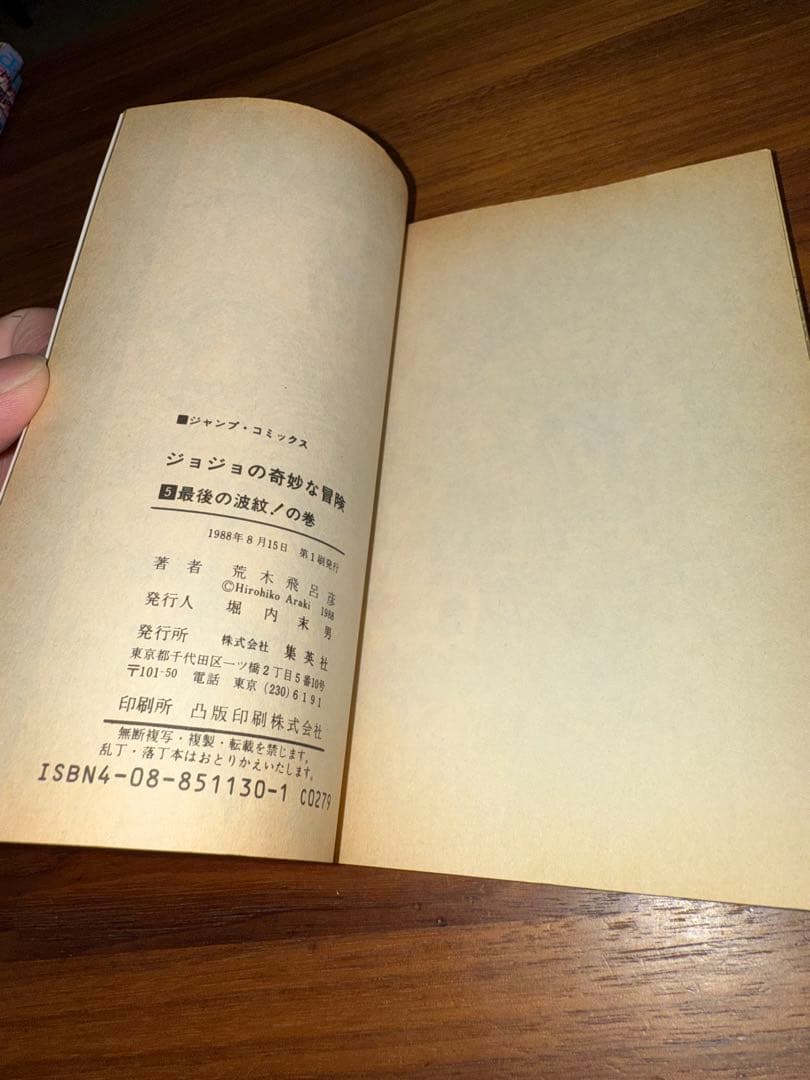 ■ジャンプ・コミックス
ジョジョの奇妙な冒険
5最後の波紋!の巻
1988年8月15日 第1刷発行
著者 荒木飛呂彦
©Hirohiko Araki 1988
発行人 堀内末男
発行所 株式会社 集英社
東京都千代田区一ツ橋2丁目5番10号
〒101-50 電話 東京(230)6191
印刷所 凸版印刷株式会社
無断複写・複製・転載を禁じます。
乱丁・落丁本はおとりかえいたします。
ISBN4-08-851130-1 C0279